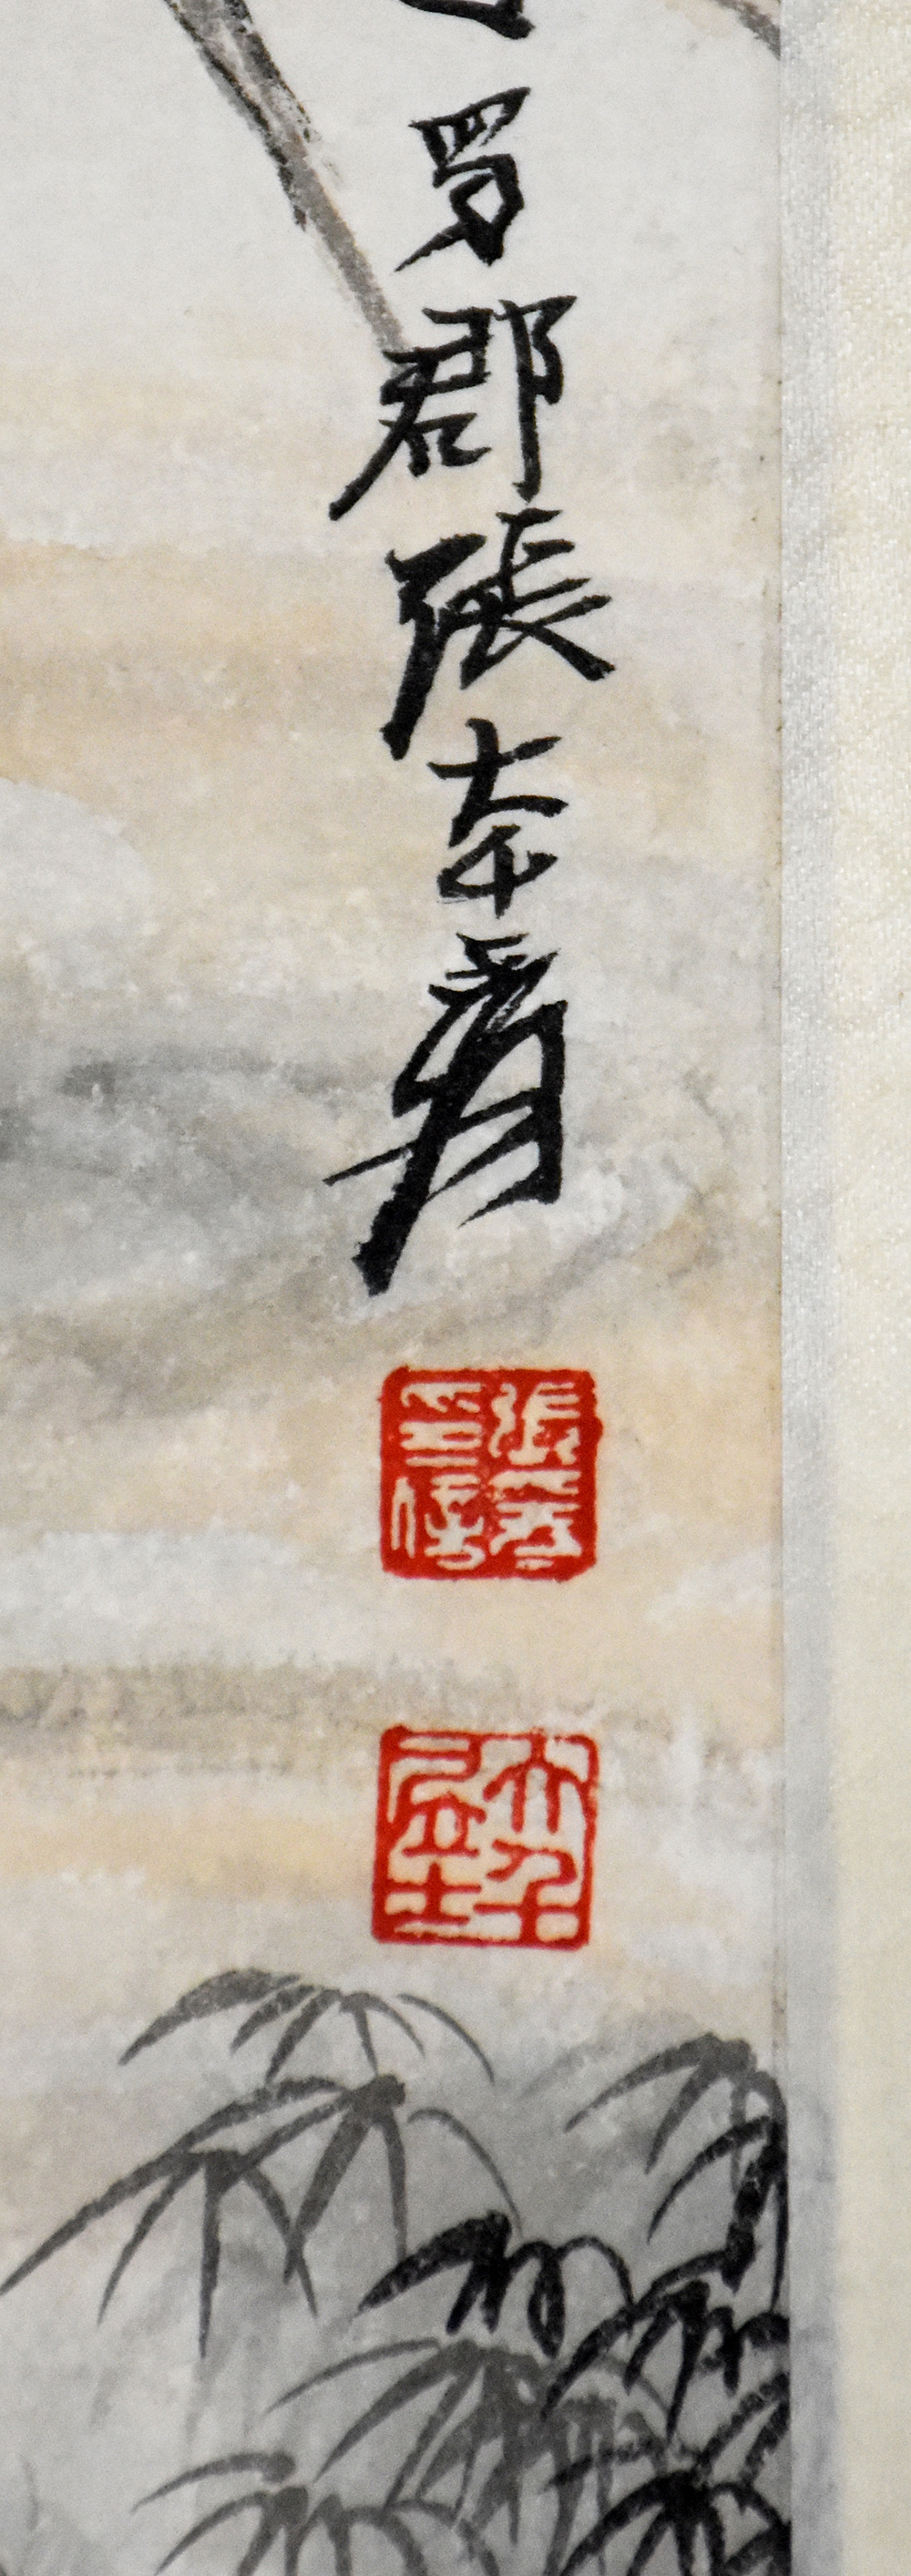 蜀郡張大千爰
張爰印信
大千居士